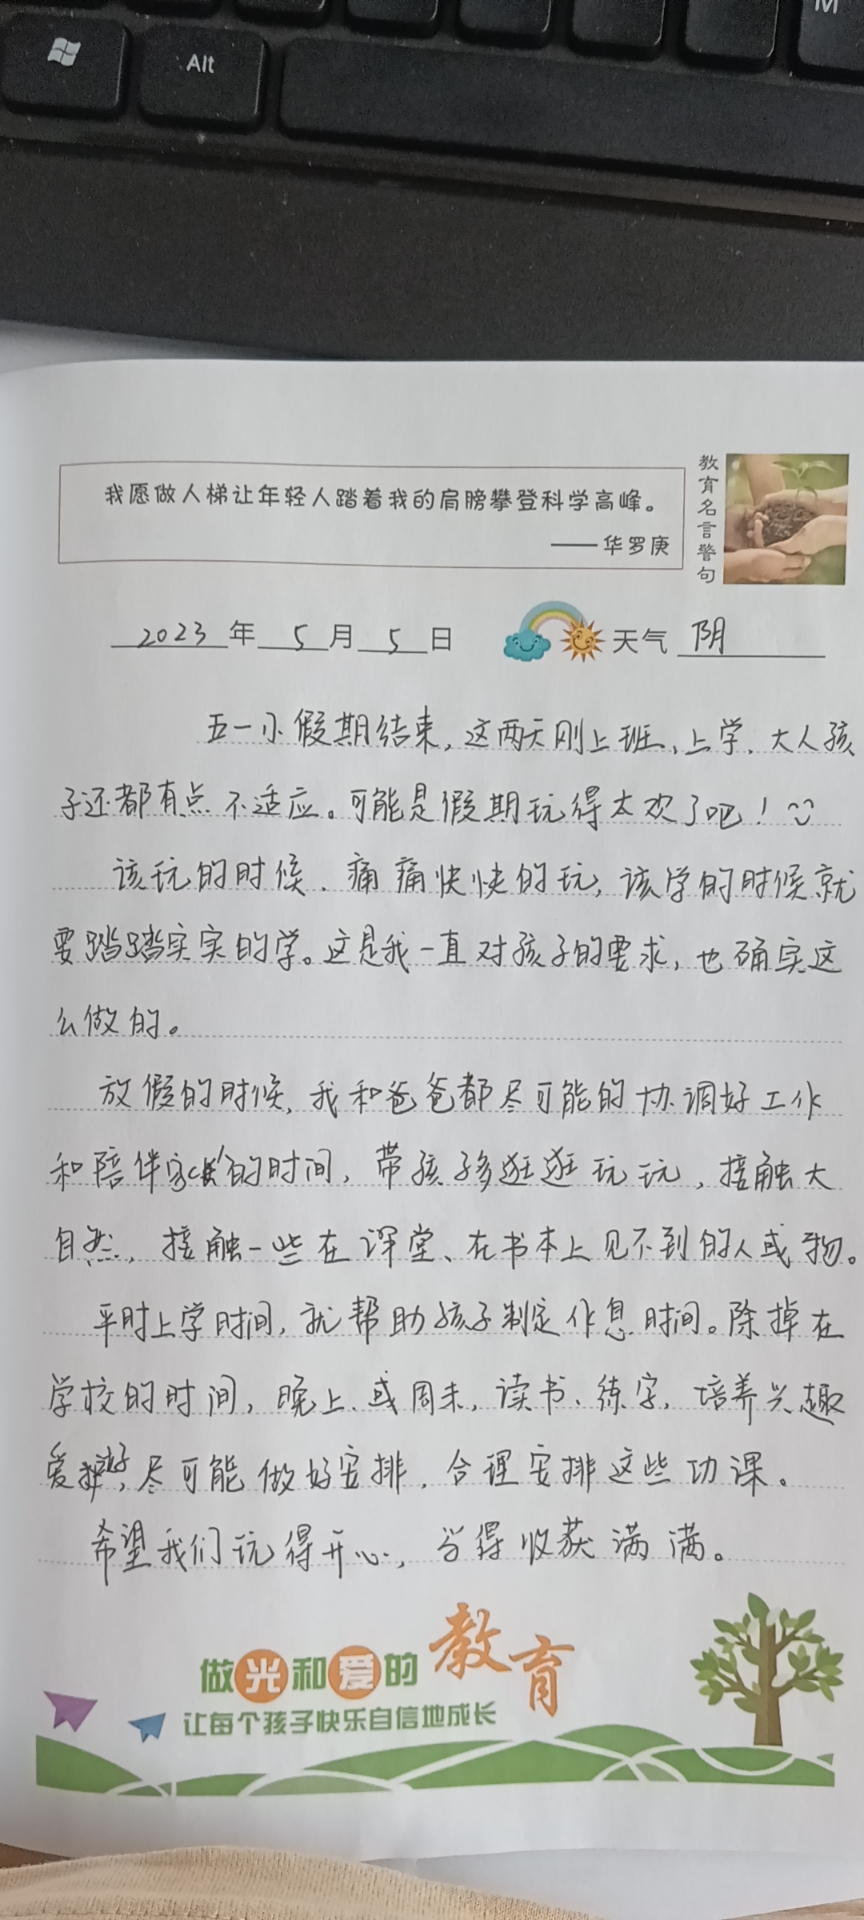 Alt
M
我愿做人梯让年轻人踏着我的肩膀攀登科学高峰。
——华罗庚
教育名言警句
2023年5月5日 天气 阴
五一小假期结束,这两天刚上班、上学,大人孩
子还都有点不适应。可能是假期玩得太欢了吧!
该玩的时候,痛痛快快的玩,该学的时候就
要踏踏实实的学。这是我一直对孩子的要求,也确实这
么做的。
放假的时候,我和爸爸都尽可能的协调好工作
和陪伴的时间,带孩子多逛逛玩玩,接触大
自然,接触一些在课堂、在书本上见不到的人或物。
平时上学时间,就帮助孩子制定作息时间。除掉在
学校的时间,晚上或周末,读书、练字,培养兴趣
爱好,尽可能做好安排,合理安排这些功课。
希望我们玩得开心,学得收获满满。
做光和爱的教育
让每个孩子快乐自信地成长